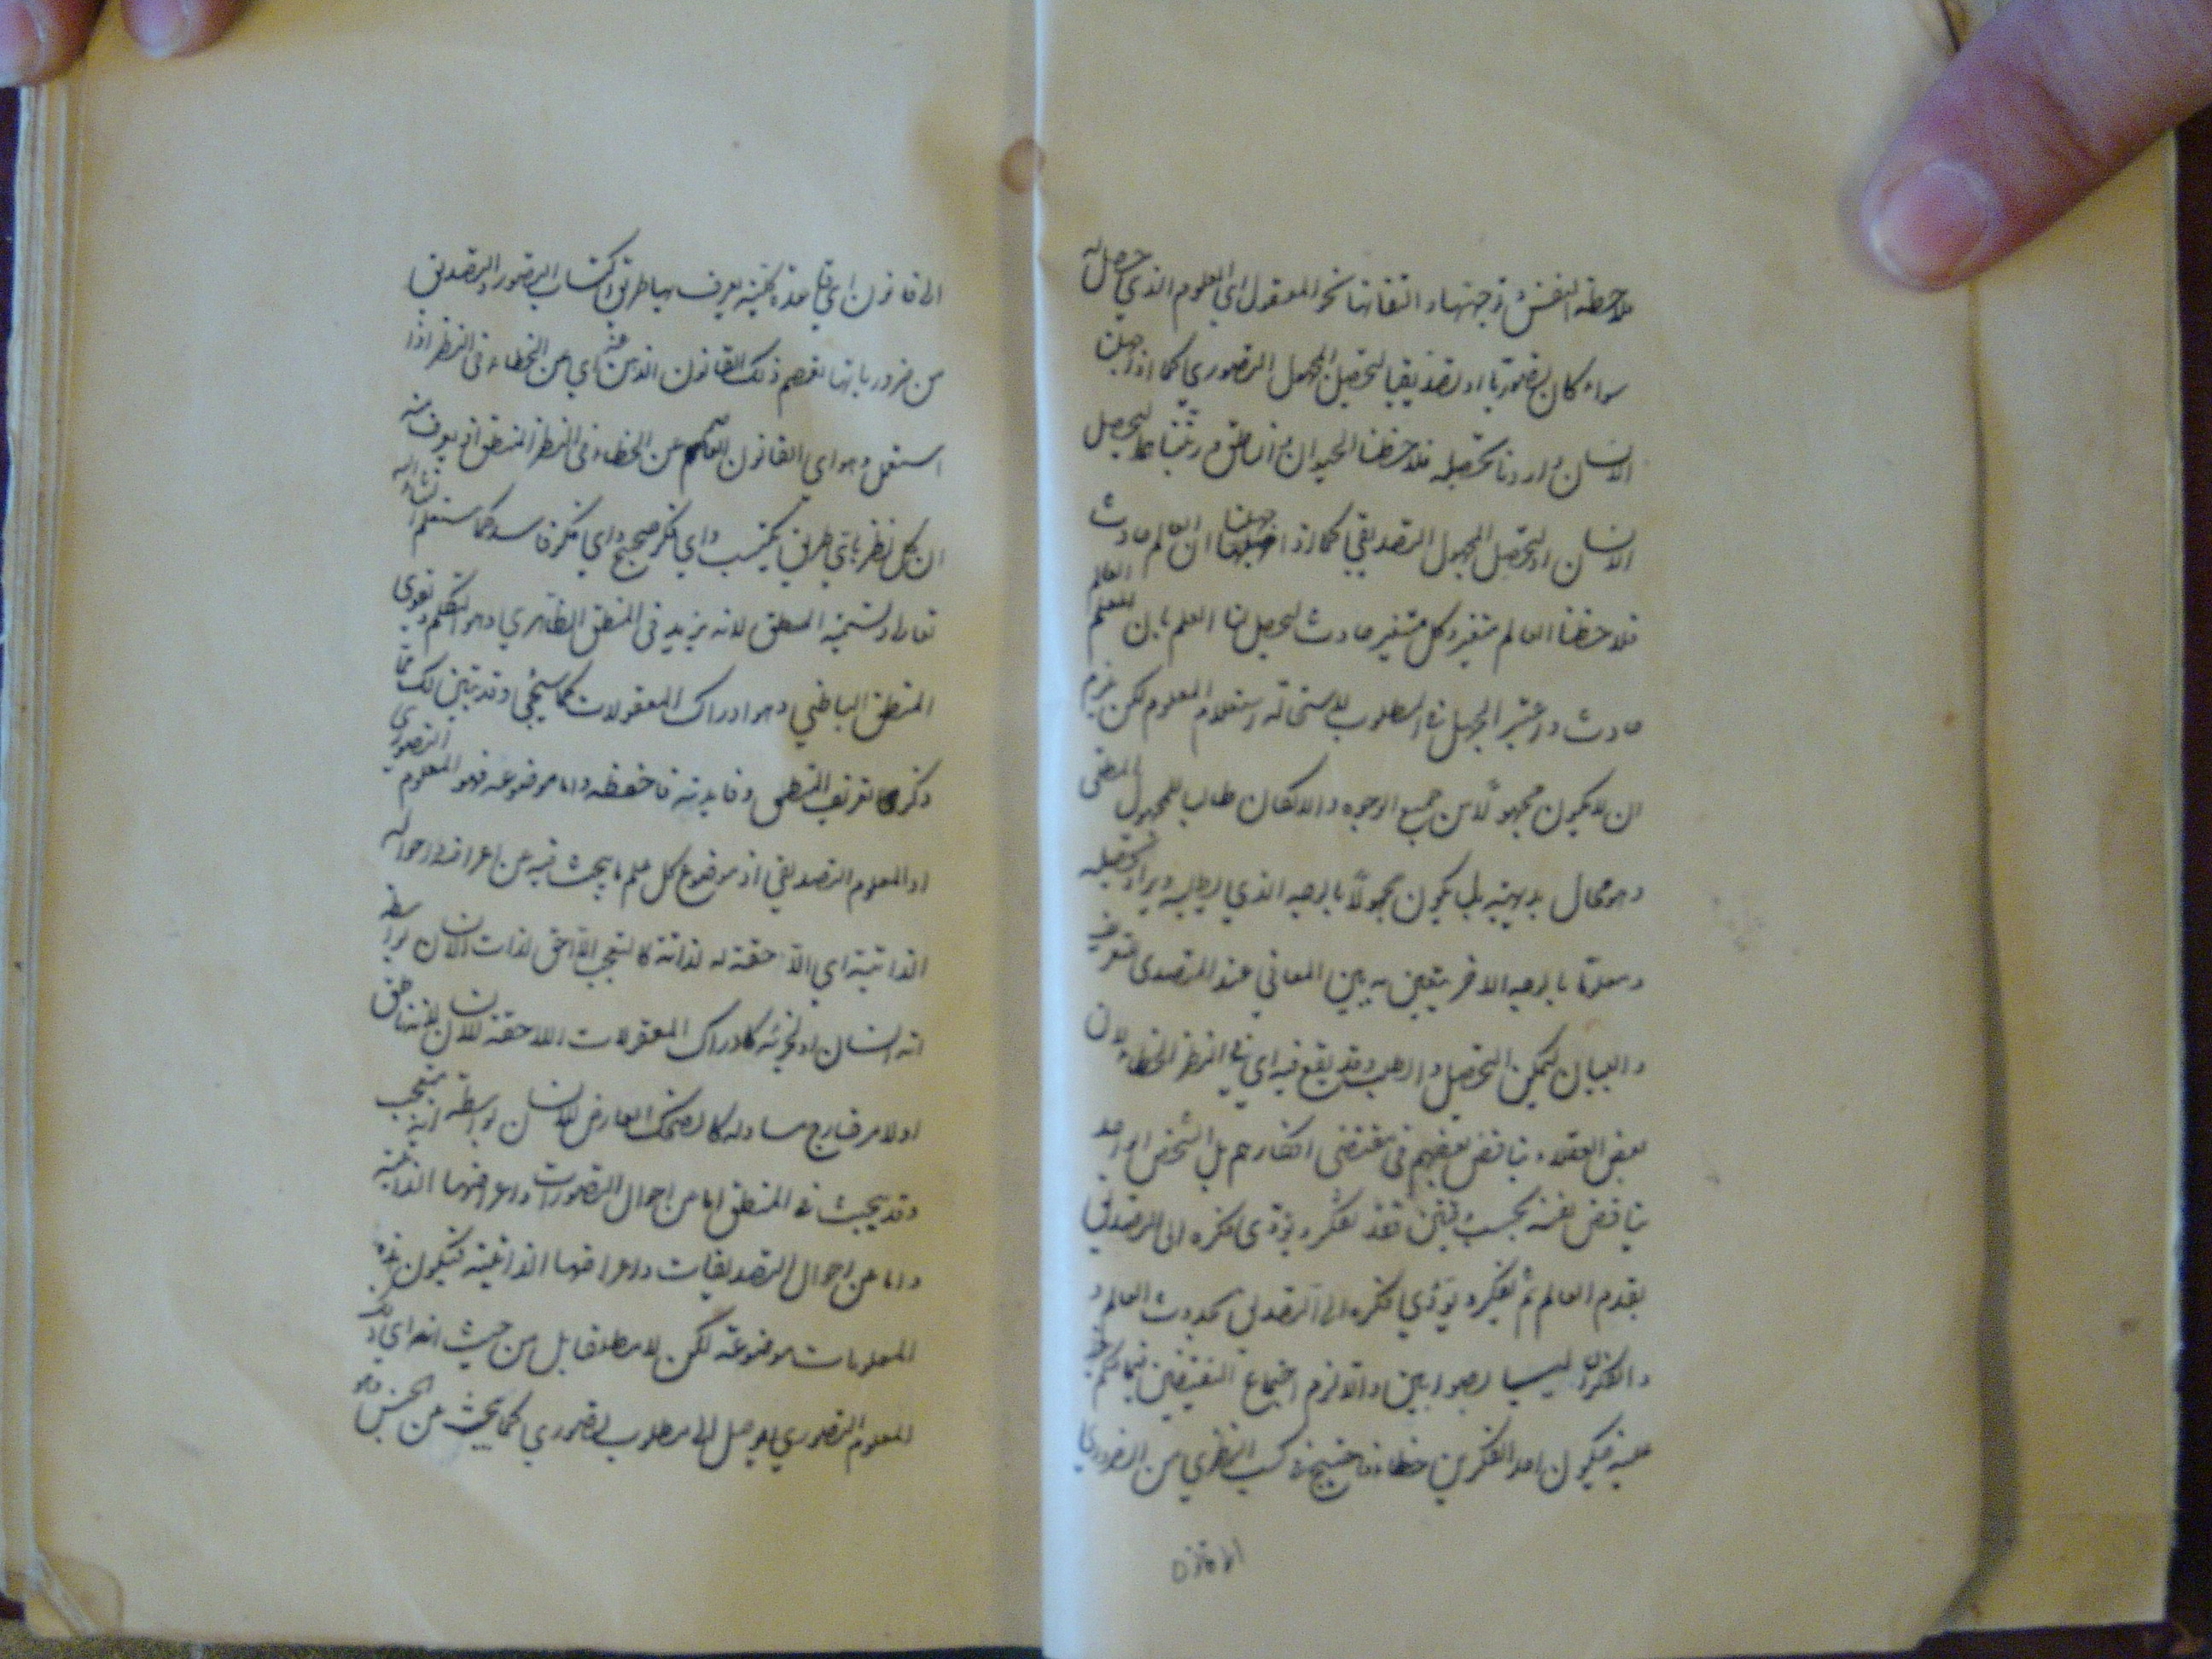 ملاحظة النفس وتوجهها والتفاتها نحو المعقول اي المعلوم الذي حصل له
سواء كان تصوريا او تصديقيا لتحصيل المجهول التصوري كما اذا جهلت
الانسان واردنا تحصيله فلاحظنا الحيوان والناطق ورتبناهما ليحصل
الانسان او لتحصيل المجهول التصديقي كما اذا جهلنا ان العالم حادث
فلاحظنا العالم متغير وكل متغير حادث ليحصل لنا العلم بان العالم
حادث واعتبر الجهل في المطلوب لاستحالة استعلام المعلوم لكن يلزم
ان لا يكون مجهولا من جميع الوجوه والا لكان طالب للمجهول المطلق
وهو محال بديهية بل يكون مجهولا بالوجه الذي يطلبه ويراد تحصيله
ومعلوما بالوجه الاخر يتعين به بين المعاني عند المتصدى
والبيان ليمكن التحصيل والطلب وقد يقع فيه اي في النظر الخطاء لان
بعض العقلاء يناقض بعضهم في مقتضى افكارهم بل الشخص الواحد
يناقض نفسه بحسب وقتين فقد يفكر ويؤدي فكره الى التصديق
بقدم العالم ثم يفكر ويؤدي فكره الى التصديق بحدوث العالم و
الفكران ليسا بصوابين والا لزم اجتماع النقيضين
فيكون احد الفكرين خطاء فاحتيج في كسب النظري من الضروري
الى قانون
الى قانون اي قاعدة كلية يعرف بها طرق اكتساب التصور والتصديق
من ضرورياتها تعصم ذلك القانون الذهن عنه اي من الخطاء في النظر اذا
استعمل وهو اي القانون العاصم عن الخطاء في النظر المنطق اذ يعرف منه
ان كل نظر باي طريق يكتسب واي فكر صحيح واي فكر فاسد كما ستعلم انشاء الله
تعالى وتسميته المنطق لانه يزيد في المنطق الظاهري وهو التكلم ويقوي
المنطق الباطني وهو ادراك المعقولات كما سيجي وقد تبين لك مما
ذكر تعريف المنطق وفايدته فاحفظه واما موضوعه فهو المعلوم التصوري
او المعلوم التصديقي اذ موضوع كل علم ما يبحث فيه عن اعراضه واحواله
الذاتية اي اللاحقة له لذاته كالتعجب اللاحق لذات الانسان بواسطة
انه انسان او لجزئه كادراك المعقولات اللاحقة للانسان لانه ناطق
او لامر خارج مساو له كالضحك العارض للانسان بواسطة انه متعجب
وقد يبحث في المنطق اما من احوال التصورات واعراضها الذاتية
واما من احوال التصديقات واعراضها الذاتية فيكون هذه
المعلومات موضوعه لكن لا مطلقا بل من حيث انه اي
المعلوم التصوري يوصل الى مطلوب تصوري كما يبحث عن الجنس